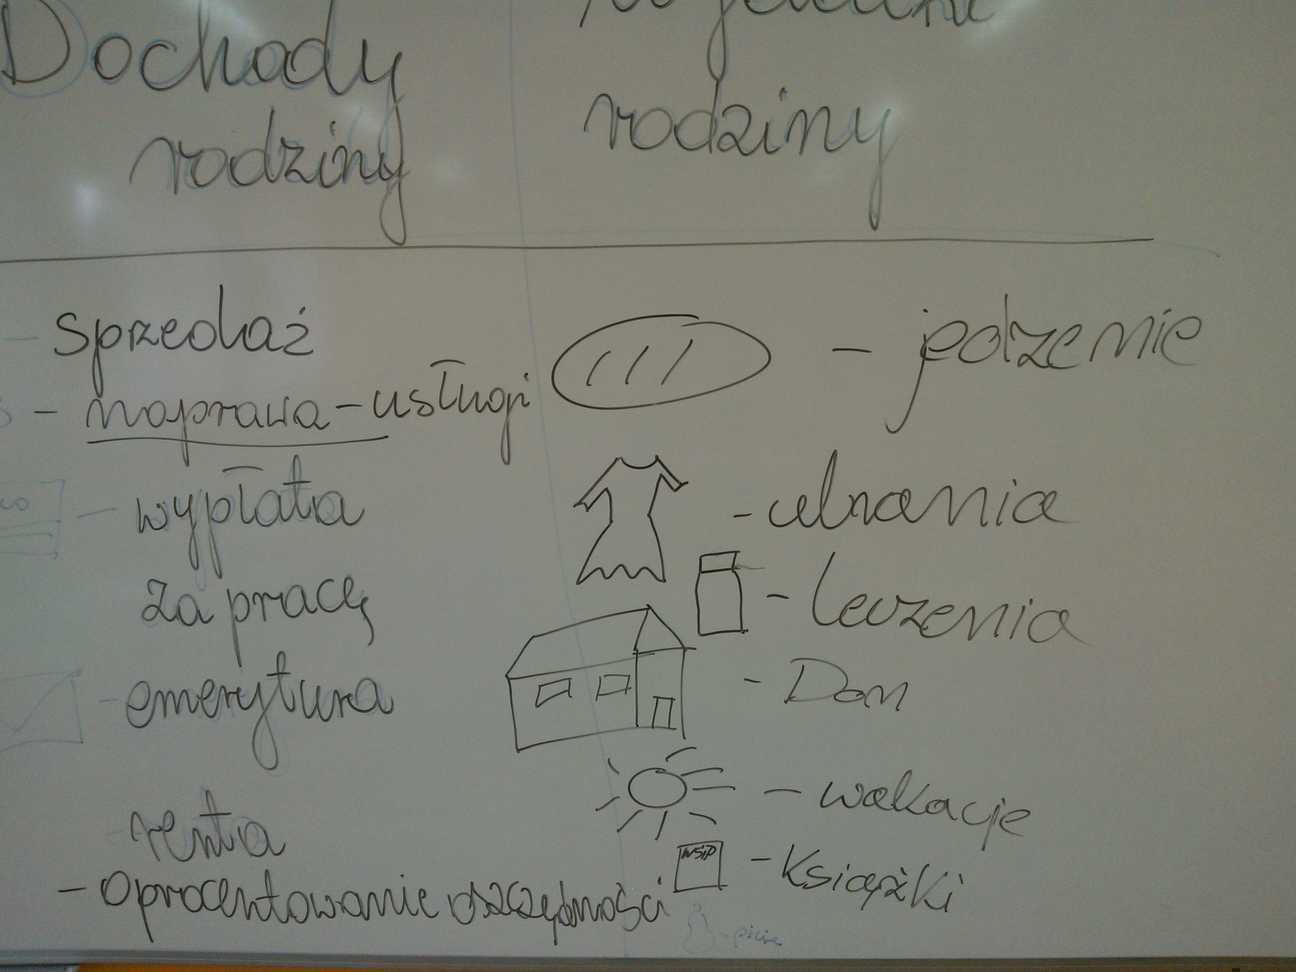 Dochody
rodziny
rodziny
sprzedaż
- naprawa - usługi
- wypłata
za pracę
- emerytura
renta
- oprocentowanie oszczędności
- jedzenie
- ubrania
- leczenia
- Dom
- wakacje
WSiP
- Książki
- picie